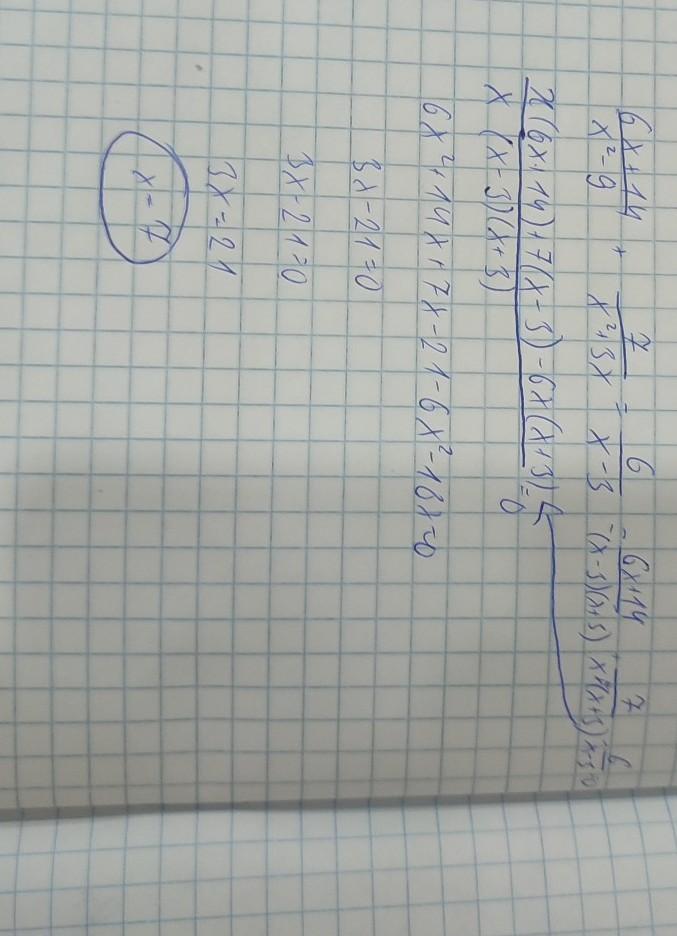 (6x+14)/(x²-9) + 7/(x²+3x) = 6/(x-3) = (6x+14)/((x-3)(x+3)) + 7/(x(x+3)) - 6/(x-3) = 0
(x(6x+14)+7(x-3)-6x(x+3))/(x(x-3)(x+3)) = 0
6x²+14x+7x-21-6x²-18x=0
3x-21=0
3x-21=0
3x=21
x=7